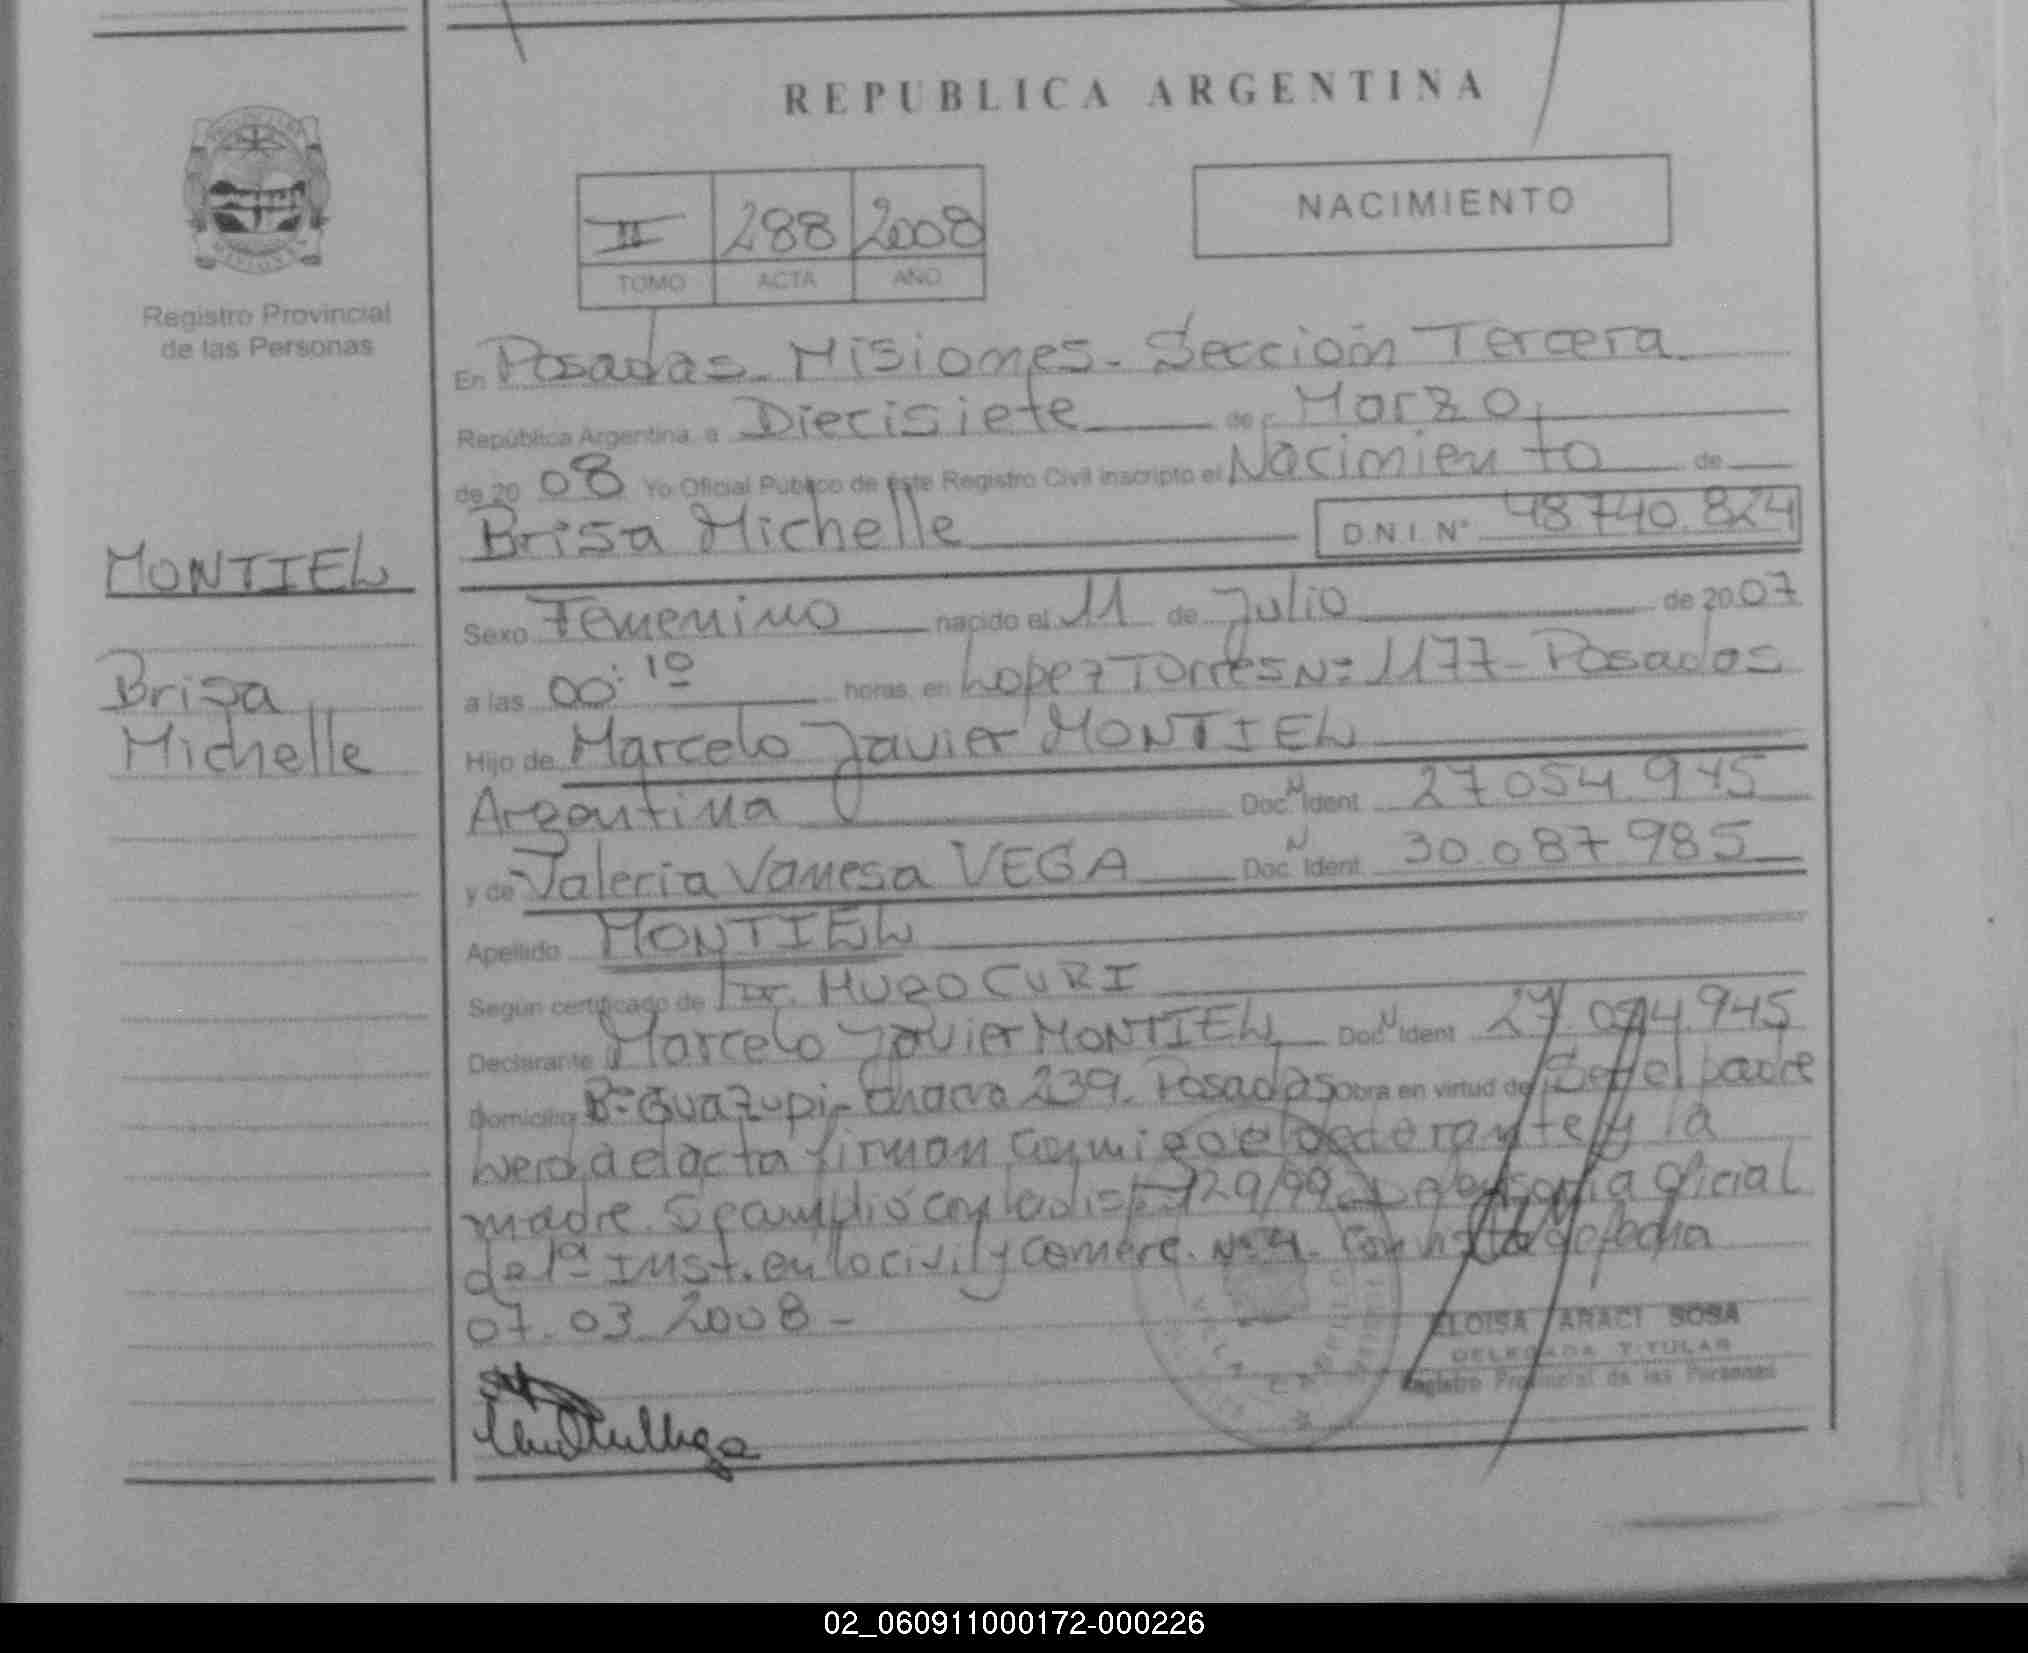 REPUBLICA ARGENTINA
NACIMIENTO
III 288 2008
TOMO ACTA AÑO
Registro Provincial
de las Personas
MONTIEL
Brisa
Michelle
En Posadas - Misiones - Sección Tercera
República Argentina a Diecisiete de Marzo
de 20 08 Yo Oficial Público de este Registro Civil inscripto el Nacimiento de
Brisa Michelle D.N.I. N° 48.740.824
Sexo Femenino nacido el 11 de Julio de 2007
a las 00:10 horas, en Lopez Torres N= 1177 - Posadas
Hijo de Marcelo Javier MONTIEL
Argentina Doc. N Ident 27.054.945
y de Valeria Vanesa VEGA Doc. N Ident. 30.087.985
Apellido MONTIEL
Según certificado de Dr. HUGO CURI
Declarante Marcelo Javier MONTIEL Doc. N Ident 27.054.945
Domicilio B= Guazupi - Chacra 239 - Posadas obra en virtud de Ser el padre
el acta firman conmigo el y la
madre. Se cumplió con la disp. 729/99 oficial
de 1ª Inst. en lo civil y comerc. N= 4. fecha
07.03.2008 -
ELOISA ARACI SOSA
DELEGADA TITULAR
Registro Provincial de las Personas
02_060911000172-000226